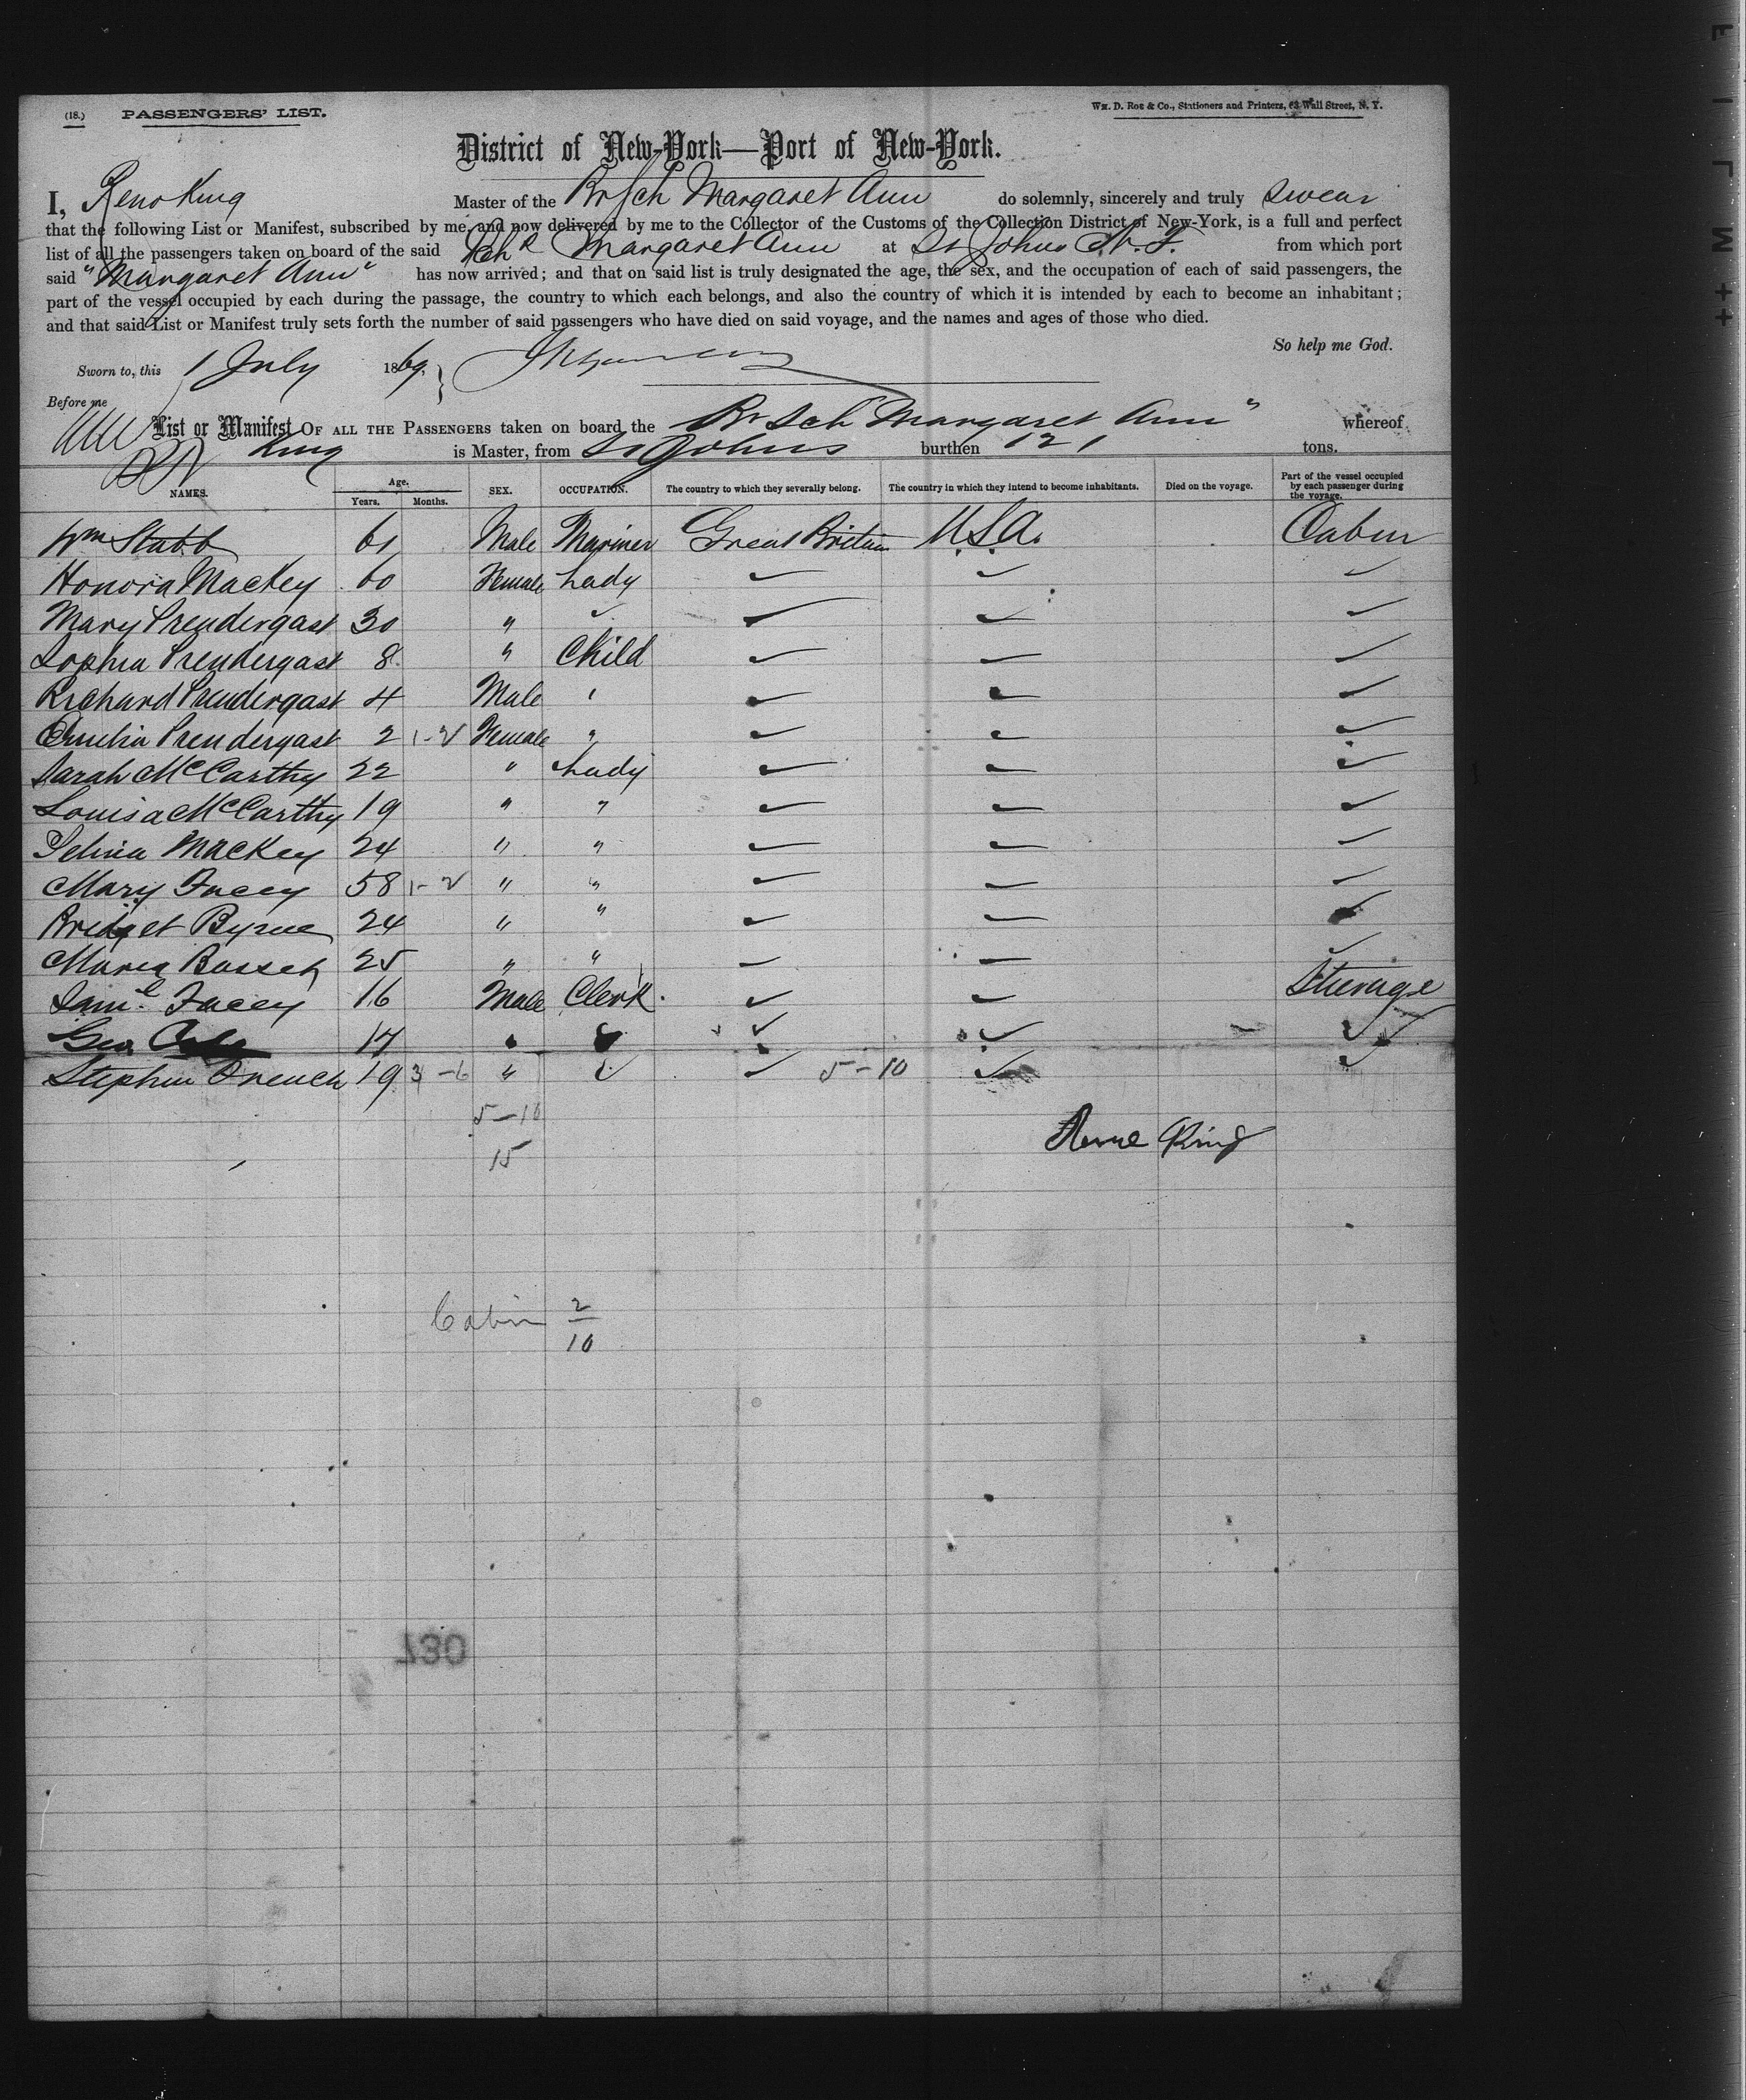 (18.) PASSENGERS' LIST. Wm. D. Roe & Co., Stationers and Printers, 63 Wall Street, N. Y.
District of New-York—Port of New-York.
I, Reno King Master of the Br Sch Margaret Ann do solemnly, sincerely and truly swear
that the following List or Manifest, subscribed by me, and now delivered by me to the Collector of the Customs of the Collection District of New-York, is a full and perfect
list of all the passengers taken on board of the said Schr Margaret Ann at St Johns N. F. from which port
said "Margaret Ann" has now arrived; and that on said list is truly designated the age, the sex, and the occupation of each of said passengers, the
part of the vessel occupied by each during the passage, the country to which each belongs, and also the country of which it is intended by each to become an inhabitant;
and that said List or Manifest truly sets forth the number of said passengers who have died on said voyage, and the names and ages of those who died.
So help me God.
Sworn to, this 1 July 1869,
Before me
List or Manifest OF ALL THE PASSENGERS taken on board the Br Sch "Margaret Ann" whereof
King is Master, from St Johns burthen 121 tons.
NAMES. Age. Years. Months. SEX. OCCUPATION. The country to which they severally belong. The country in which they intend to become inhabitants. Died on the voyage. Part of the vessel occupied by each passenger during the voyage.
Wm Stabb 61 Male Mariner Great Britain U.S.A. Cabin
Honora Mackey 60 Female Lady ✓ ✓ ✓
Mary Prendergast 30 " ✓ ✓ ✓ ✓
Sophia Prendergast 8 " Child ✓ ✓ ✓
Richard Prendergast 4 Male " ✓ ✓ ✓
Emelia Prendergast 2 1-2 Female " ✓ ✓ ✓
Sarah McCarthy 22 " Lady ✓ ✓ ✓
Louisa McCarthy 19 " " ✓ ✓ ✓
Selina Mackey 24 " " ✓ ✓ ✓
Mary Facey 58 1-2 " " ✓ ✓ ✓
Bridget Byrne 24 " " ✓ ✓
Maria Bassett 25 " " ✓ ✓ ✓
Saml. Facey 16 Male Clerk. ✓ ✓ Steerage
Geo. 17 " ✓ ✓ ✓
Stephen French 19 3-6 " ✓ ✓ 5-10 ✓ ✓
5-10
Rene King
15
Cabin 2
10
730